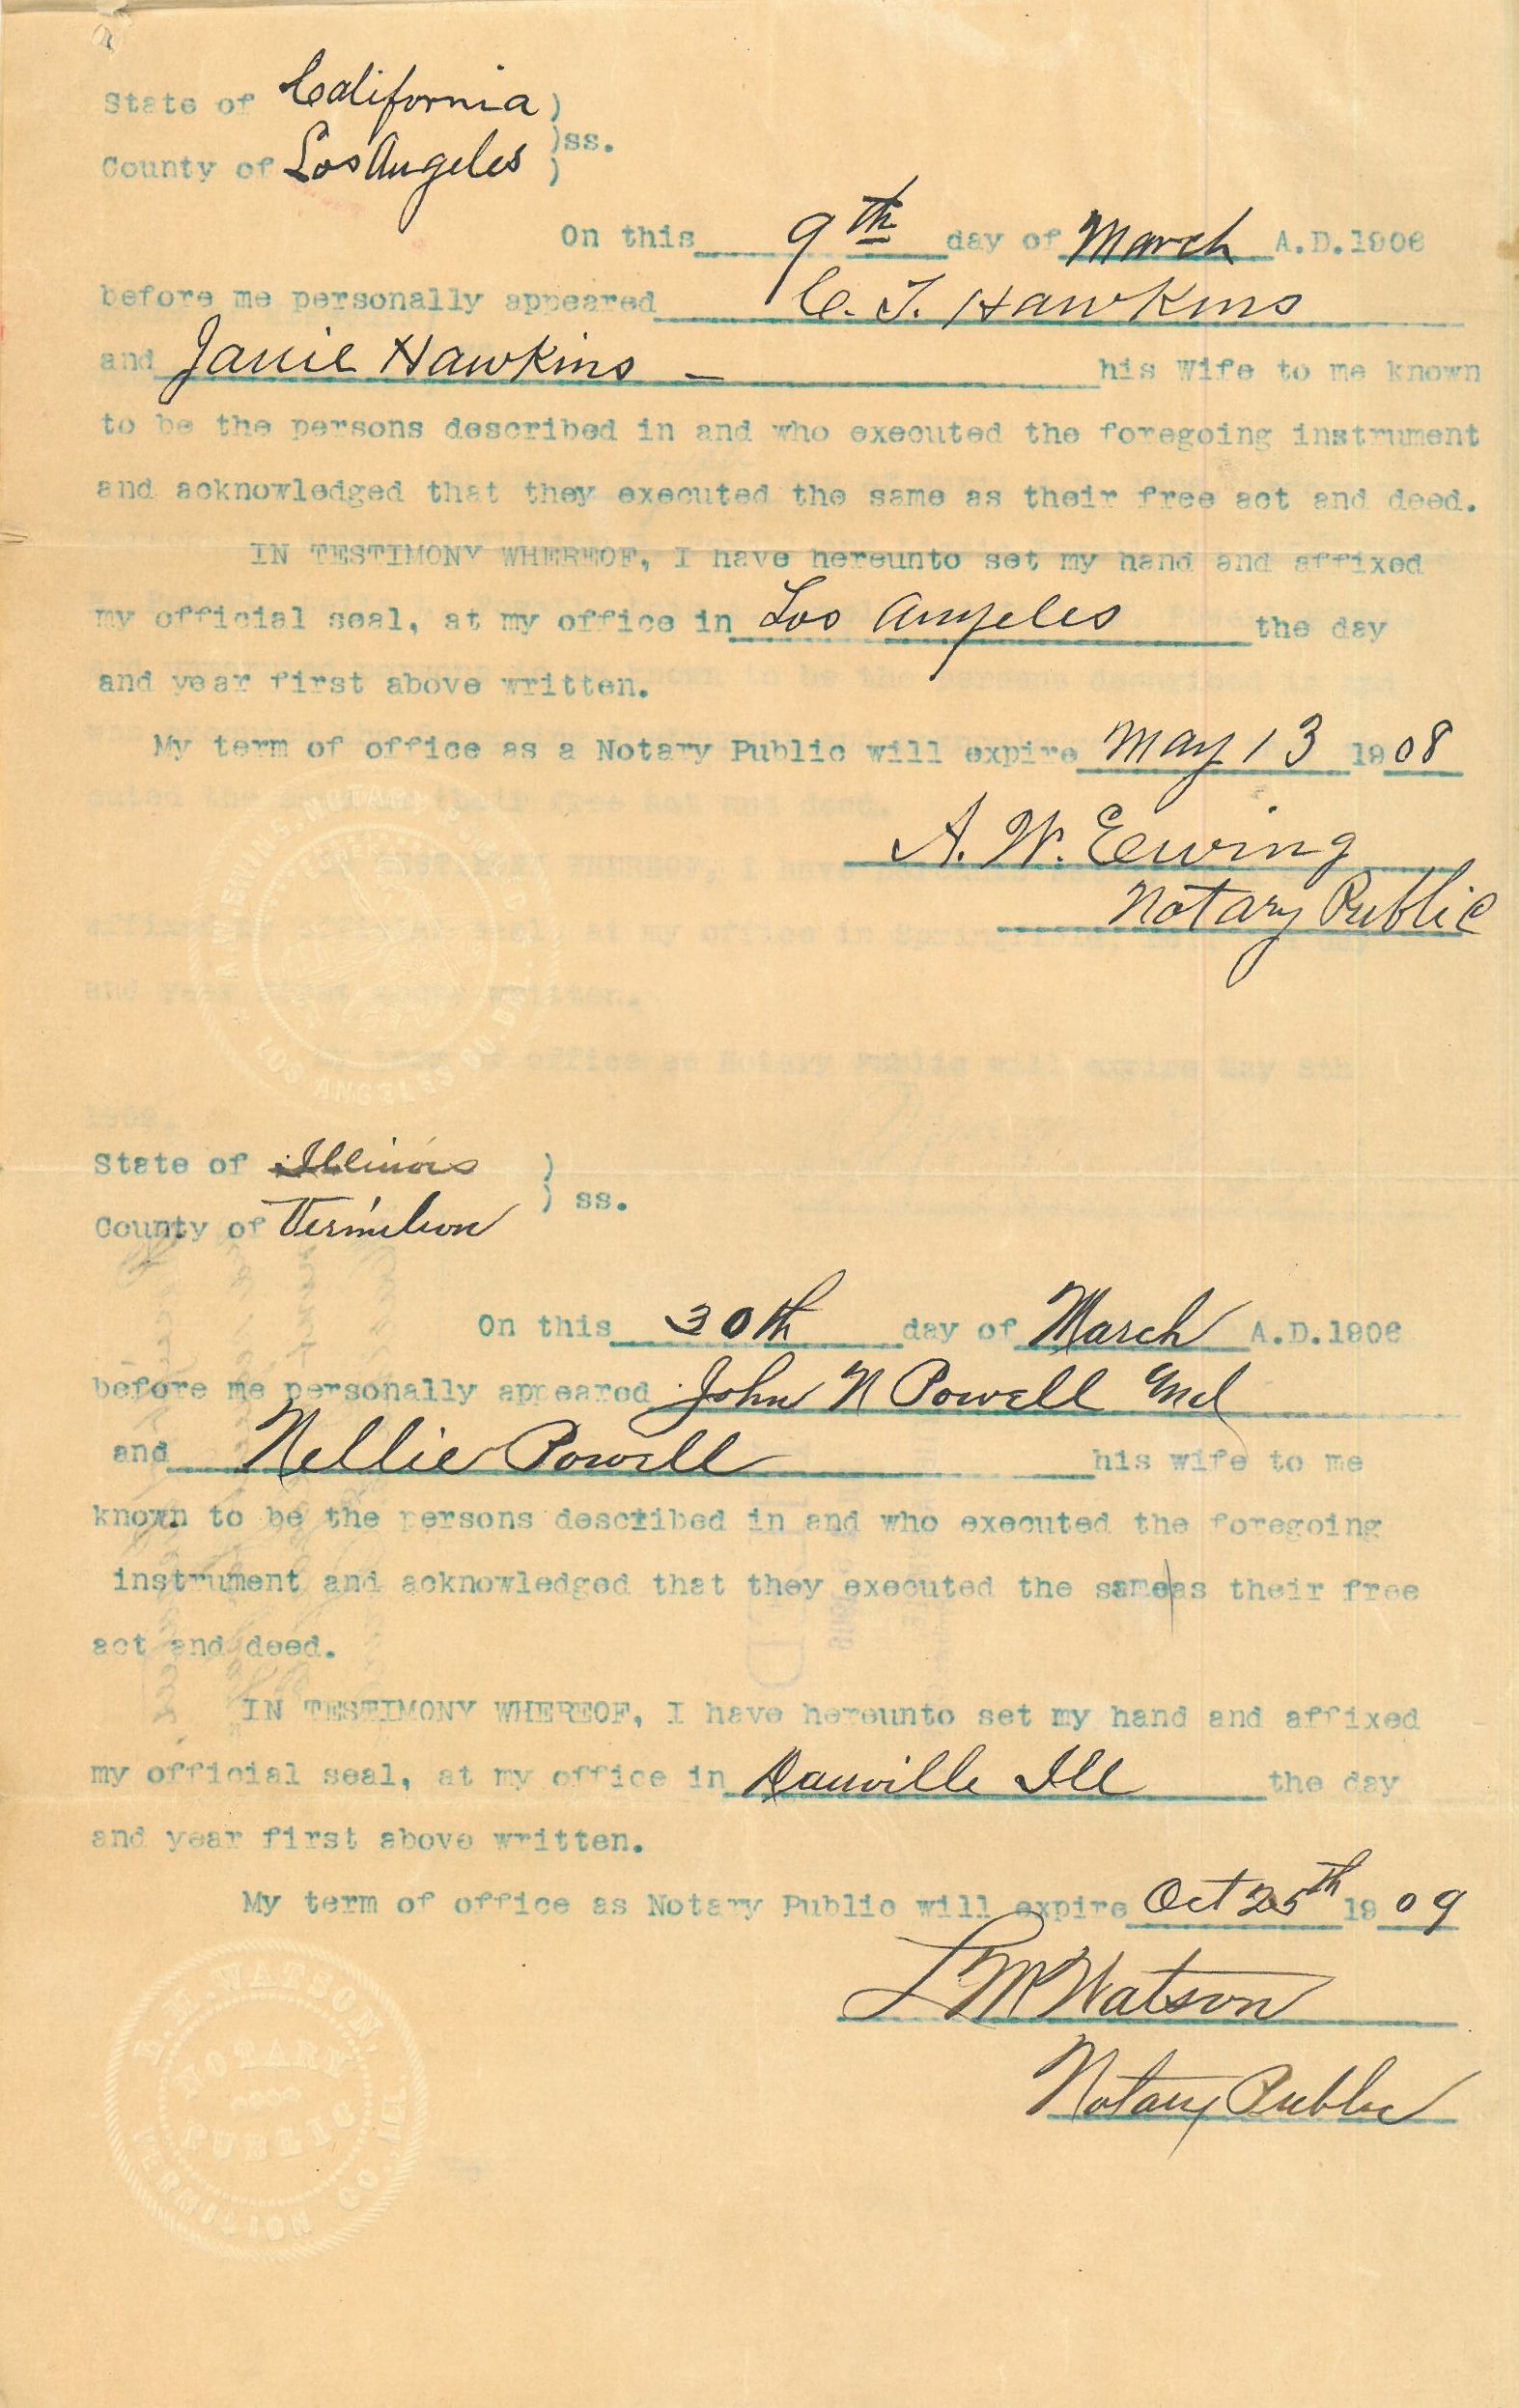 State of California )
)ss.
County of Los Angeles )
On this 9th day of March A.D.1906
before me personally appeared C. T. Hawkins
and Janie Hawkins - his Wife to me known
to be the persons described in and who executed the foregoing instrument
and acknowledged that they executed the same as their free act and deed.
IN TESTIMONY WHEREOF, I have hereunto set my hand and affixed
my official seal, at my office in Los Angeles the day
and year first above written.
My term of office as a Notary Public will expire May 13 1908
A. W. Ewing
Notary Public
LOS ANGELES CO.
State of Illinois )
) ss.
County of Vermilion
On this 30th day of March A.D.1906
before me personally appeared John N Powell and
and Nellie Powell his wife to me
known to be the persons described in and who executed the foregoing
instrument and acknowledged that they executed the same|as their free
act and deed.
IN TESTIMONY WHEREOF, I have hereunto set my hand and affixed
my official seal, at my office in Danville Ill the day
and year first above written.
My term of office as Notary Public will expire Oct 25th 1909
L M Watson
Notary Public
L. M. WATSON.
NOTARY
PUBLIC
VERMILION CO. ILL.